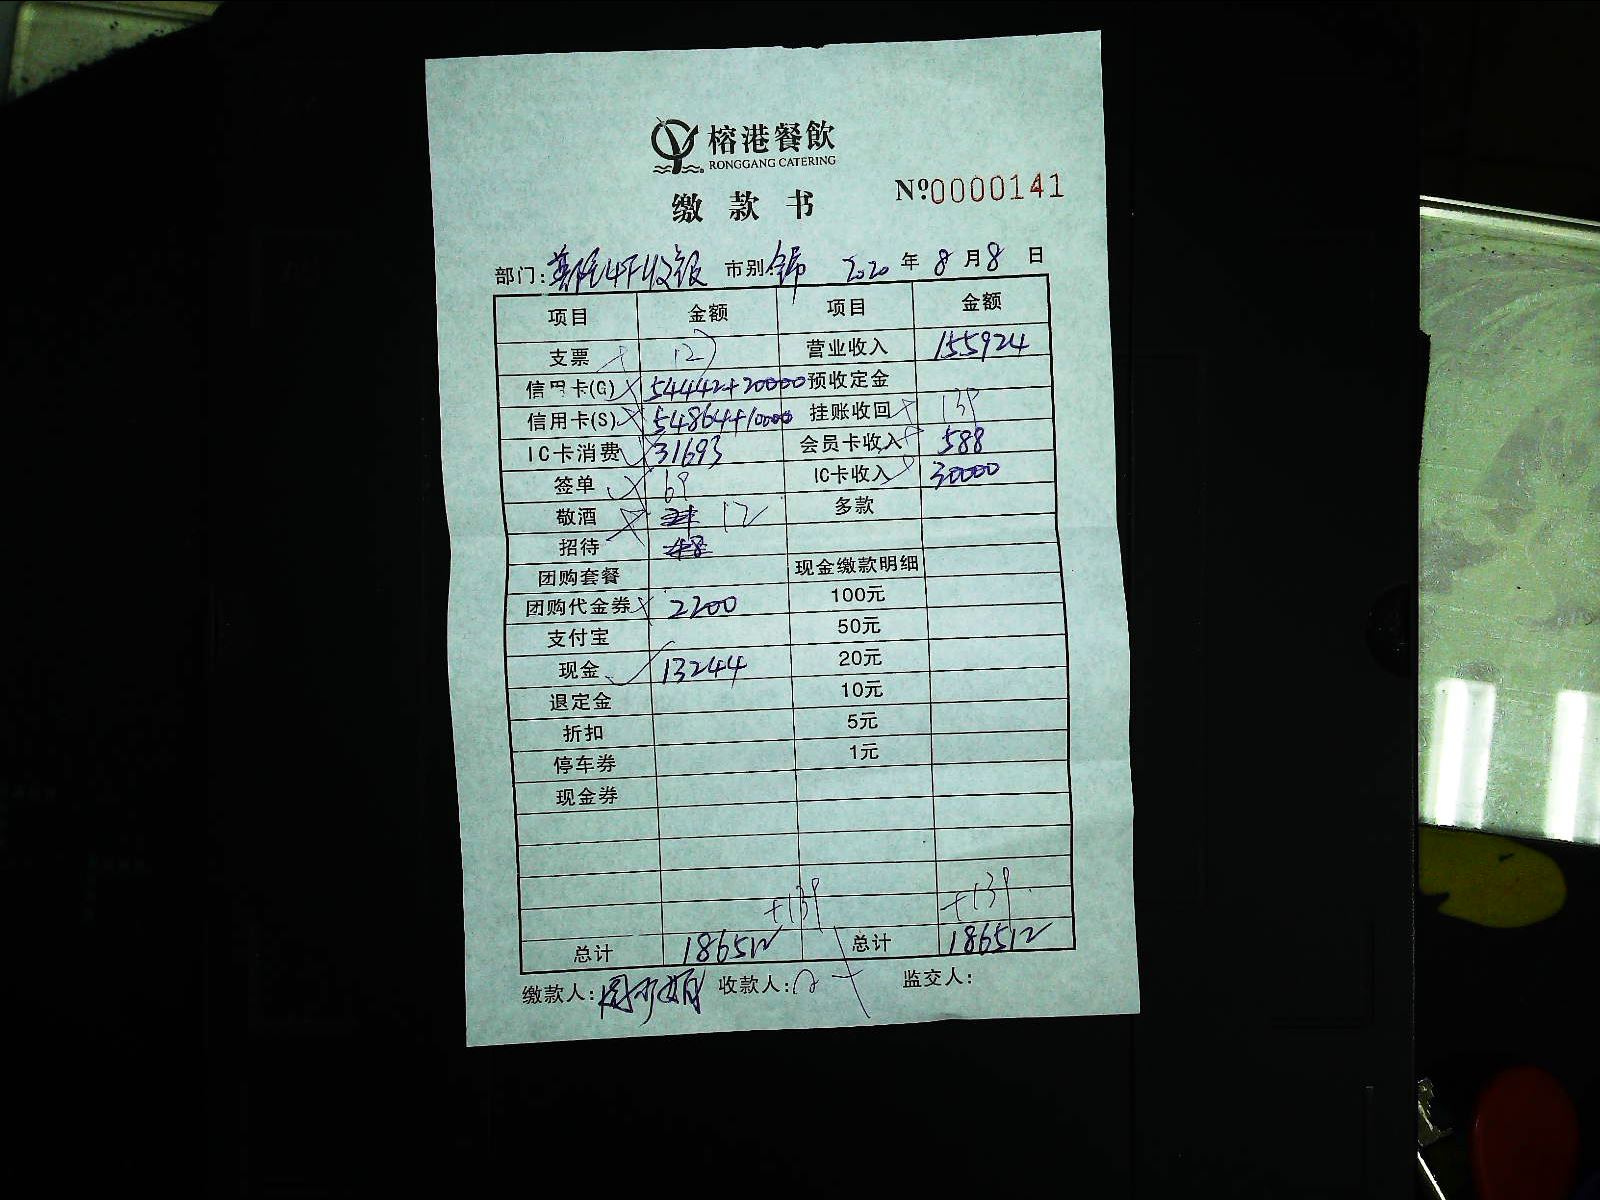 榕港餐飲
RONGGANG CATERING
缴款书
Nº0000141
部门: 市别 2020 年 8 月 8 日
项目 金额 项目 金额
支票 营业收入 155924
信用卡(G) 54442+20000 预收定金
信用卡(S) 54864+10000 挂账收回 139
IC卡消费 31693 会员卡收入 588
签单 69 IC卡收入 30000
敬酒 12 多款
招待
团购套餐 现金缴款明细
团购代金券 2200 100元
支付宝 50元
现金 13244 20元
退定金 10元
折扣 5元
停车券 1元
现金券
+139 +139
总计 186512 总计 186512
缴款人: 收款人: 监交人: